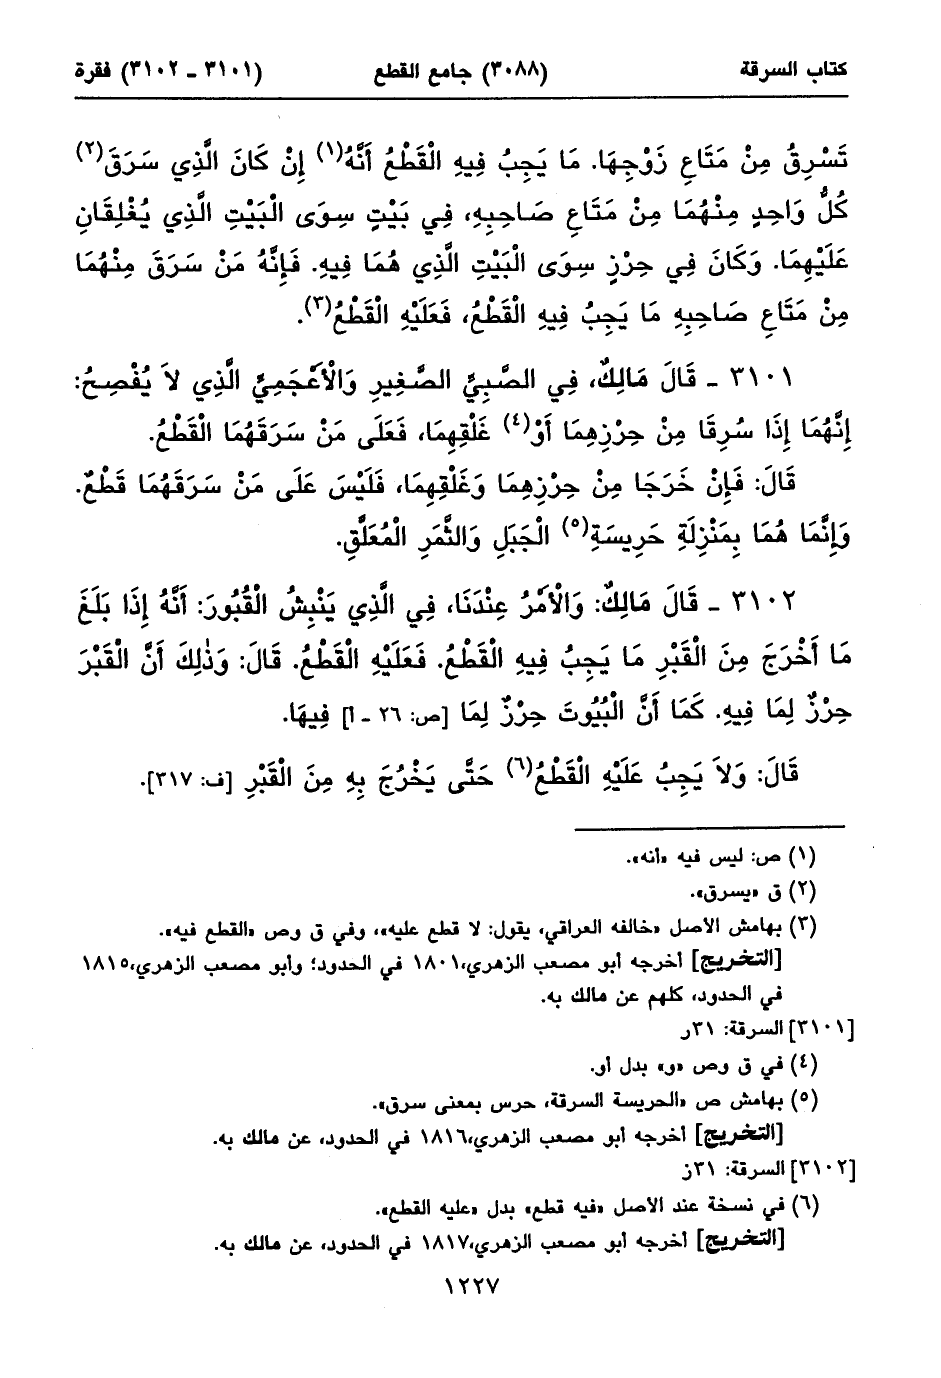 كتاب السرقة (٣٠٨٨) جامع القطع (٣١٠١ - ٣١٠٢) فقرة
تَسْرِقُ مِنْ مَتَاعِ زَوْجِهَا. مَا يَجِبُ فِيهِ الْقَطْعُ أَنَّهُ(١) إِنْ كَانَ الَّذِي سَرَقَ(٢)
كُلُّ وَاحِدٍ مِنْهُمَا مِنْ مَتَاعِ صَاحِبِهِ، فِي بَيْتٍ سِوَى الْبَيْتِ الَّذِي يُغْلِقَانِ
عَلَيْهِمَا. وَكَانَ فِي حِرْزٍ سِوَى الْبَيْتِ الَّذِي هُمَا فِيهِ. فَإِنَّهُ مَنْ سَرَقَ مِنْهُمَا
مِنْ مَتَاعِ صَاحِبِهِ مَا يَجِبُ فِيهِ الْقَطْعُ، فَعَلَيْهِ الْقَطْعُ(٣).
٣١٠١ - قَالَ مَالِكٌ، فِي الصَّبِيِّ الصَّغِيرِ وَالْأَعْجَمِيِّ الَّذِي لاَ يُفْصِحُ:
إِنَّهُمَا إِذَا سُرِقَا مِنْ حِرْزِهِمَا أَوْ(٤) غَلْقِهِمَا، فَعَلَى مَنْ سَرَقَهُمَا الْقَطْعُ.
قَالَ: فَإِنْ خَرَجَا مِنْ حِرْزِهِمَا وَغَلْقِهِمَا، فَلَيْسَ عَلَى مَنْ سَرَقَهُمَا قَطْعٌ.
وَإِنَّمَا هُمَا بِمَنْزِلَةِ حَرِيسَةِ(٥) الْجَبَلِ وَالثَّمَرِ الْمُعَلَّقِ.
٣١٠٢ - قَالَ مَالِكٌ: وَالْأَمْرُ عِنْدَنَا، فِي الَّذِي يَنْبِشُ الْقُبُورَ: أَنَّهُ إِذَا بَلَغَ
مَا أَخْرَجَ مِنَ الْقَبْرِ مَا يَجِبُ فِيهِ الْقَطْعُ. فَعَلَيْهِ الْقَطْعُ. قَالَ: وَذٰلِكَ أَنَّ الْقَبْرَ
حِرْزٌ لِمَا فِيهِ. كَمَا أَنَّ الْبُيُوتَ حِرْزٌ لِمَا [ص: ٢٦ - أ] فِيهَا.
قَالَ: وَلاَ يَجِبُ عَلَيْهِ الْقَطْعُ(٦) حَتَّى يَخْرُجَ بِهِ مِنَ الْقَبْرِ [ف: ٣١٧].
(١) ص: ليس فيه «أنه».
(٢) ق «يسرق».
(٣) بهامش الأصل «خالفه العراقي، يقول: لا قطع عليه»، وفي ق وص «القطع فيه».
[التخريج] أخرجه أبو مصعب الزهري،١٨٠١ في الحدود؛ وأبو مصعب الزهري،١٨١٥
في الحدود، كلهم عن مالك به.
[٣١٠١] السرقة: ٣١ر
(٤) في ق وص «و» بدل أو.
(٥) بهامش ص «الحريسة السرقة، حرس بمعنى سرق».
[التخريج] أخرجه أبو مصعب الزهري،١٨١٦ في الحدود، عن مالك به.
[٣١٠٢] السرقة: ٣١ز
(٦) في نسخة عند الأصل «فيه قطع» بدل «عليه القطع».
[التخريج] أخرجه أبو مصعب الزهري،١٨١٧ في الحدود، عن مالك به.
١٢٢٧